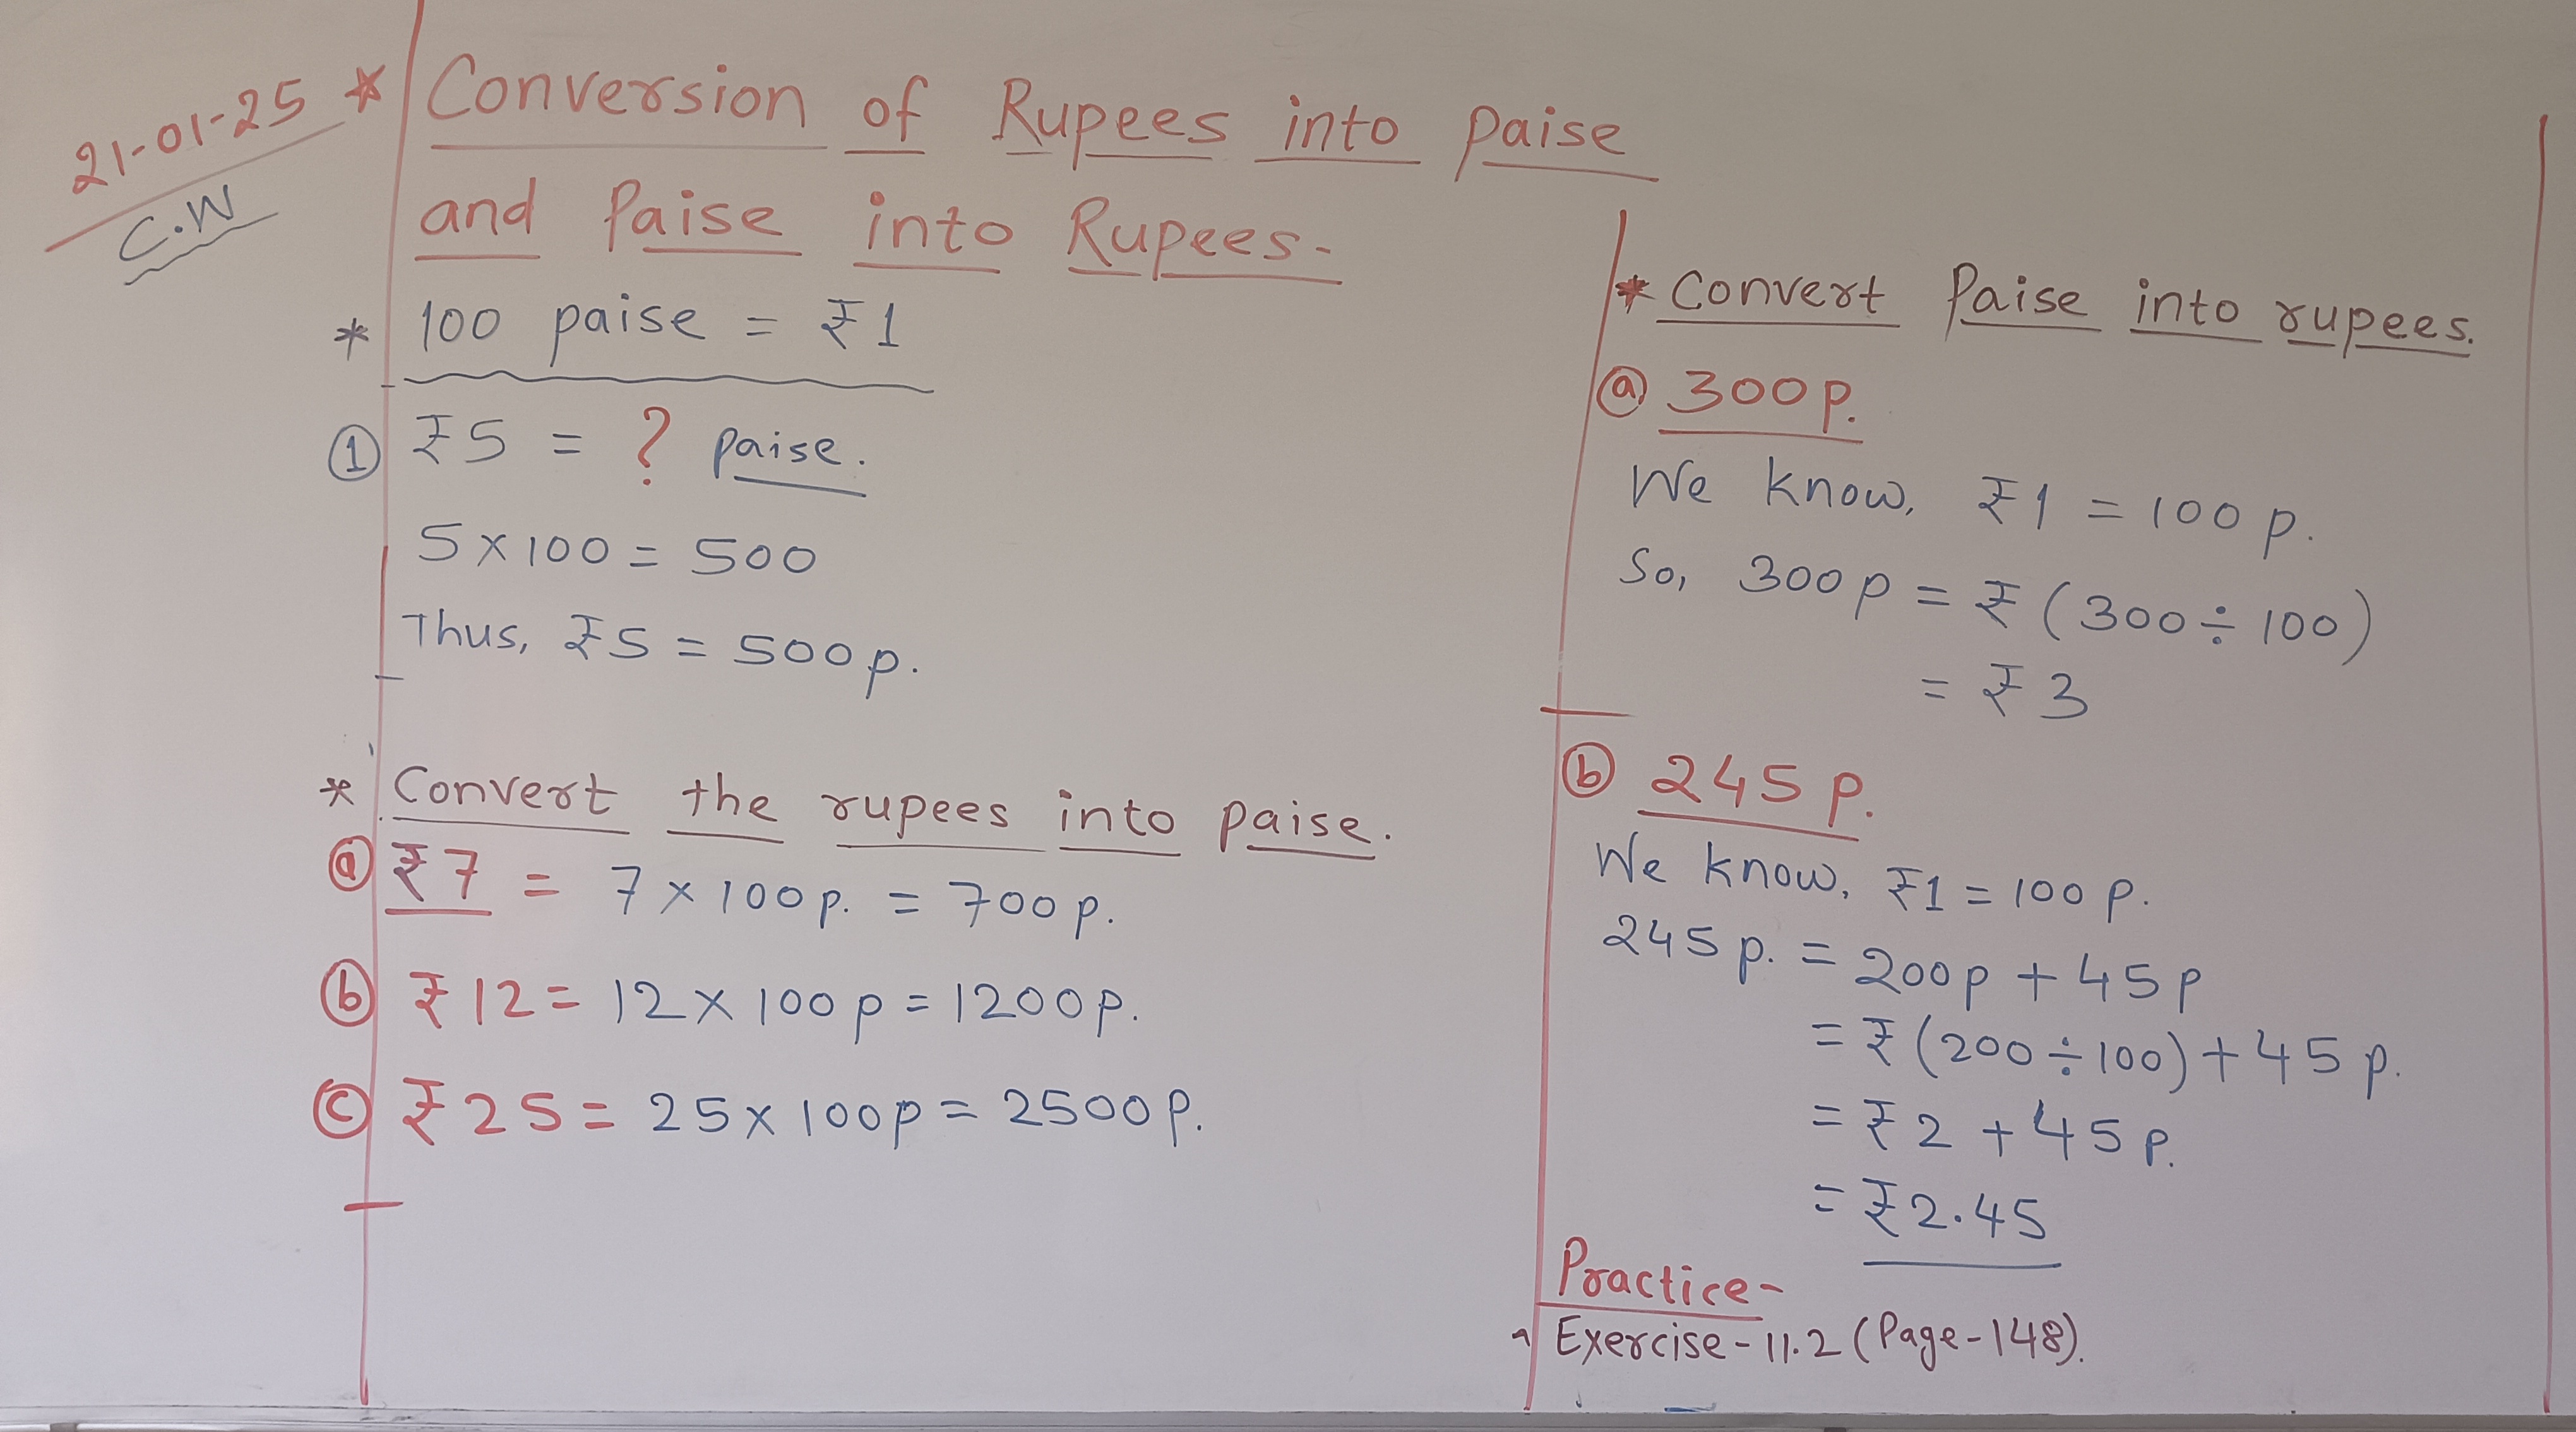 21-01-25
C.W
* Conversion of Rupees into paise
and Paise into Rupees-
* 100 paise = ₹1
① ₹5 = ? paise.
5 × 100 = 500
Thus, ₹5 = 500p.
* Convert the rupees into paise.
ⓐ ₹7 = 7 × 100p. = 700p.
ⓑ ₹12 = 12 × 100p = 1200p.
ⓒ ₹25 = 25 × 100p = 2500p.
* Convert Paise into rupees.
ⓐ 300p.
We know, ₹1 = 100p.
So, 300p = ₹(300 ÷ 100)
= ₹3
ⓑ 245p.
We know, ₹1 = 100p.
245p. = 200p + 45p
= ₹(200 ÷ 100) + 45p.
= ₹2 + 45p.
= ₹2.45
Practice-
Exercise-11.2 (Page-148).